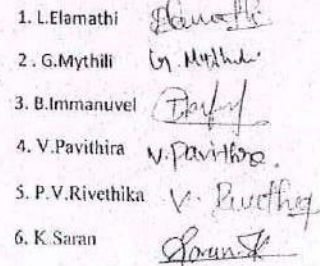 1. L.Elamathi Elamathi
2 . G.Mythili G. Mythili
3. B.Immanuvel
4. V.Pavithira V. Pavithra.
5. P.V.Rivethika V. Rivethika
6. K.Saran Saran.K